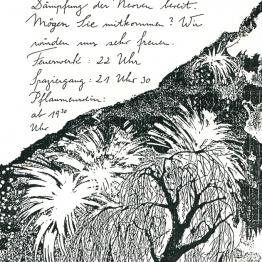 Dämpfung der Nerven bereit.
Mögen Sie mitkommen? Wir
würden uns sehr freuen.
Feuerwerk: 22 Uhr
Spaziergang: 21 Uhr 30
Pflaumenwein:
ab 19³⁰
Uhr